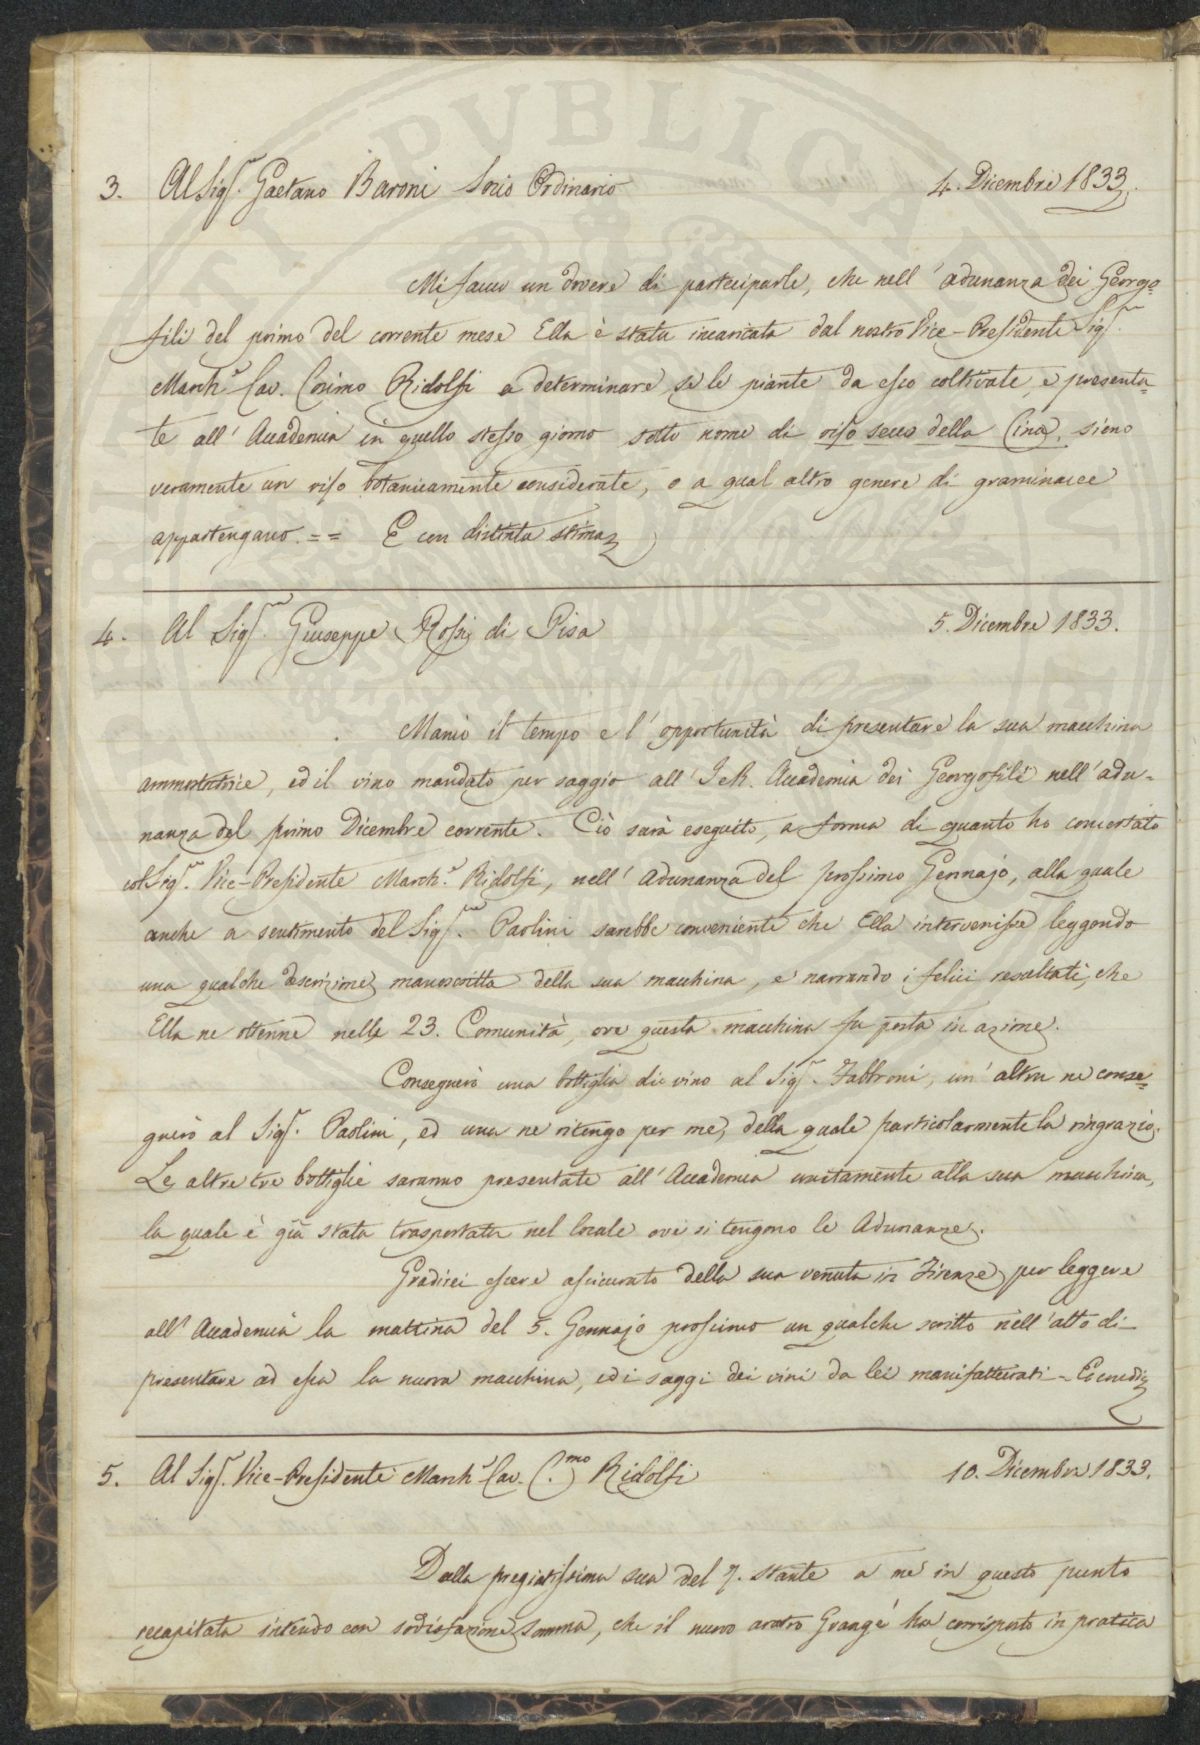 3. Al Sigr. Gaetano Baroni Socio Ordinario 4. Dicembre 1833.
Mi faccio un dovere di parteciparle, che nell' adunanza dei Georgo=
fili del primo del corrente mese Ella è stata incaricata dal nostro Vice-Presidente Sigr.
March.e Cav. Cosimo Ridolfi a determinare se le piante da esso coltivate, e presenta=
te all' Accademia in quello stesso giorno sotto nome di riso secco della Cina, sieno
veramente un riso botanicamente considerate, o a qual altro genere di graminacee
appartengano. == E con distinta stima
4. Al Sigr. Giuseppe Rossi di Pisa 5. Dicembre 1833.
Mancò il tempo e l' opportunità di presentare la sua macchina
ammostatrice, ed il vino mandato per saggio all' I e R. Accademia dei Georgofili nell' adu-
nanza del primo Dicembre corrente. Ciò sarà eseguito, a forma di quanto ho concertato
col Sigr. Vice-Presidente March.e Ridolfi, nell' adunanza del prossimo Gennajo, alla quale
anche a sentimento del Sigr. Paolini sarebbe conveniente che Ella intervenisse leggendo
una qualche descrizione manoscritta della sua macchina, e narrando i felici resultati, che
Ella ne ottenne nelle 23. Comunità, ove questa macchina fu posta in azione.
Conseguerò una bottiglia di vino al Sigr. Fabbroni, un' altra ne conse=
gnerò al Sigr. Paolini, ed una ne ritengo per me, della quale particolarmente la ringrazio.
Le altre tre bottiglie saranno presentate all' Accademia unitamente alla sua macchina,
la quale è già stata trasportata nel locale ove si tengono le Adunanze.
Gradirei essere assicurato della sua venuta in Firenze per leggere
all' Accademia la mattina del 5. Gennajo prossimo un qualche scritto nell' atto di
presentare ad essa la nuova macchina, ed i saggi dei vini da lei manifatturati -
5. Al Sigr. Vice-Presidente March.e Cav. C.mo Ridolfi 10. Dicembre 1833.
Dalla pregiatissima sua del 7. stante a me in questo punto
recapitata intendo con sodisfazione somma, che il nuovo aratro Grangé ha corrisposto in pratica